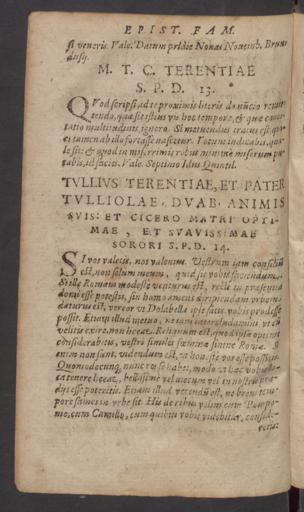 EPIST. FAM.
si veneris. Vale. Datum pridie Nonas Novemb. Brun
dusij.
M. T. C. TERENTIAE
S. P. D. 13.
QVod scripsi ad te proximis literis de nūcio remit
tendo, quæ sit istius vis hoc tempore, & quæ concitatio multitudinis, ignoro. Si metuendus iratus est, qui
es tamen ab illo fortasse nascetur. Totum iudicabis, qua
le sit: & quod in miserrimis rebus minimè miserum pu
tabis, id facies. Vale. Septimo Idus Quintil.
TVLLIVS TERENTIAE, ET PATER
TVLLIOLAE, DVAB. ANIMIS
SVIS: ET CICERO MATRI OPTI-
MAE, ET SVAVISSIMAE
SORORI S. P. D. 14.
SI vos valetis, nos valemus. Vestrum iam consiliū
est, non solum meum, quid sit vobis faciendum.
Si ille Romam modestè venturus est, rectè in præsentia
domi esse potestis, sin homo amens diripiendam urbem
daturus est, vereor ut Dolabella ipse satis nobis prodesse
possit. Etiam illud metuo, ne iam intercludamini, ut cū
velitis exire, non liceat. Reliquum est, quod ipsæ optimè
considerabitis, vestri similes fœminæ sintne Romæ. Si
enim non sunt, videndum est, ut honestè vos esse possitis.
Quomodo cunq; nunc res se habet, modò ut hæc vobis lo-
ca tenere liceat, bellissimè vel mecum vel in nostris præ
dijs esse poteritis. Etiam illud verendū est, ne brevi tem-
pore fames in urbe sit. His de rebus velim cum Pompo-
nio, cum Camillo, cum quibus vobis videbitur, conside-
retis: